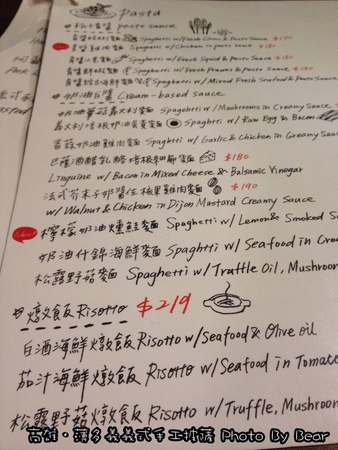 Pasta
松子青醬 pesto sauce
Spaghetti w/ Fresh Clams & Pesto Sauce $190
青醬雞肉麵 Spaghetti w/Chicken in pesto sauce $180
Spaghetti w/ Fresh Squid & Pesto Sauce
Spaghetti w/ Fresh Prawns & Pesto Sauce
Spaghetti w/ Mixed Fresh Seafood & Pesto Sauce
奶油白醬 Cream-based Sauce
奶油蘑菇義大利麵 Spaghetti w/Mushrooms in Creamy Sauce
義大利培根奶油蛋黃麵 Spaghetti w/ Raw Egg & Bacon
蒜菇奶油雞肉麵 Spaghetti w/ Garlic & Chicken in Creamy Sauce
巴薩米醋乳酪培根細扁麵 $180
Linguine w/ Bacon in Mixed Cheese & Balsamic Vinegar
法式芥末籽奶醬佐核果雞肉麵 $190
w/ Walnut & Chicken in Dijon Mustard Creamy Sauce
檸檬奶油燻鮭麵 Spaghetti w/ Lemon & Smoked
奶油什錦海鮮麵 Spaghtti w/ Seafood in
松露野菇麵 Spaghetti w/Truffle Oil, Mushroom
燉飯 Risotto $219
白酒海鮮燉飯 Risotto w/Seafood & Olive oil
茄汁海鮮燉飯 Risotto w/Seafood in Tomato
松露野菇燉飯 Risotto w/Truffle, Mushroom
高雄·薄多義義式手工披薩 Photo By Bear